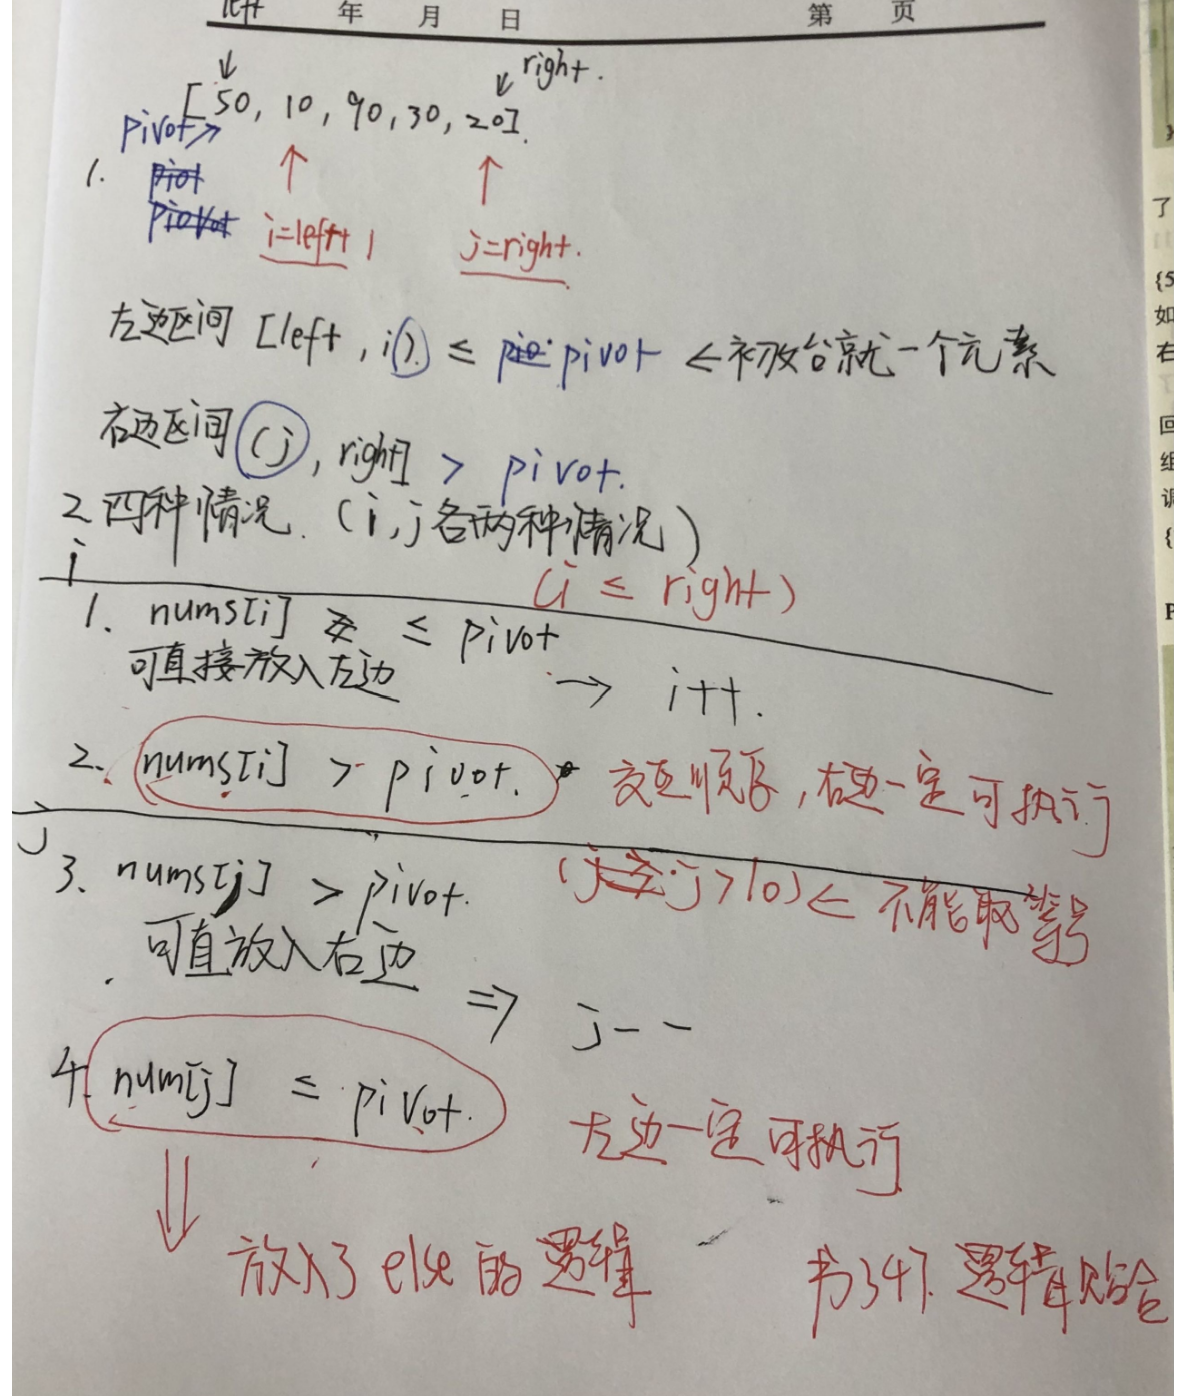 left 年 月 日 第 页
right.
[50, 10, 90, 30, 20].
pivot
1.
i=left+1
j=right.
左边区间 [left, i). ≤ pivot ← 初始台就一个元素
右边区间 (j, right] > pivot.
2 四种情况. (i, j 各两种情况)
i
(i ≤ right)
1. nums[i] ≤ pivot
可直接放入左边 → i++.
2. nums[i] > pivot. 交互顺序, 右边一定可执行
j
3. nums[j] > pivot. j > lo) ← 不能取等号
可直放入右边 ⇒ j--
4. num[j] ≤ pivot. 左边一定可执行
⇓
放入了 else 的逻辑
书347. 逻辑贴合
了
{5
如
右
了
回
组
调
{